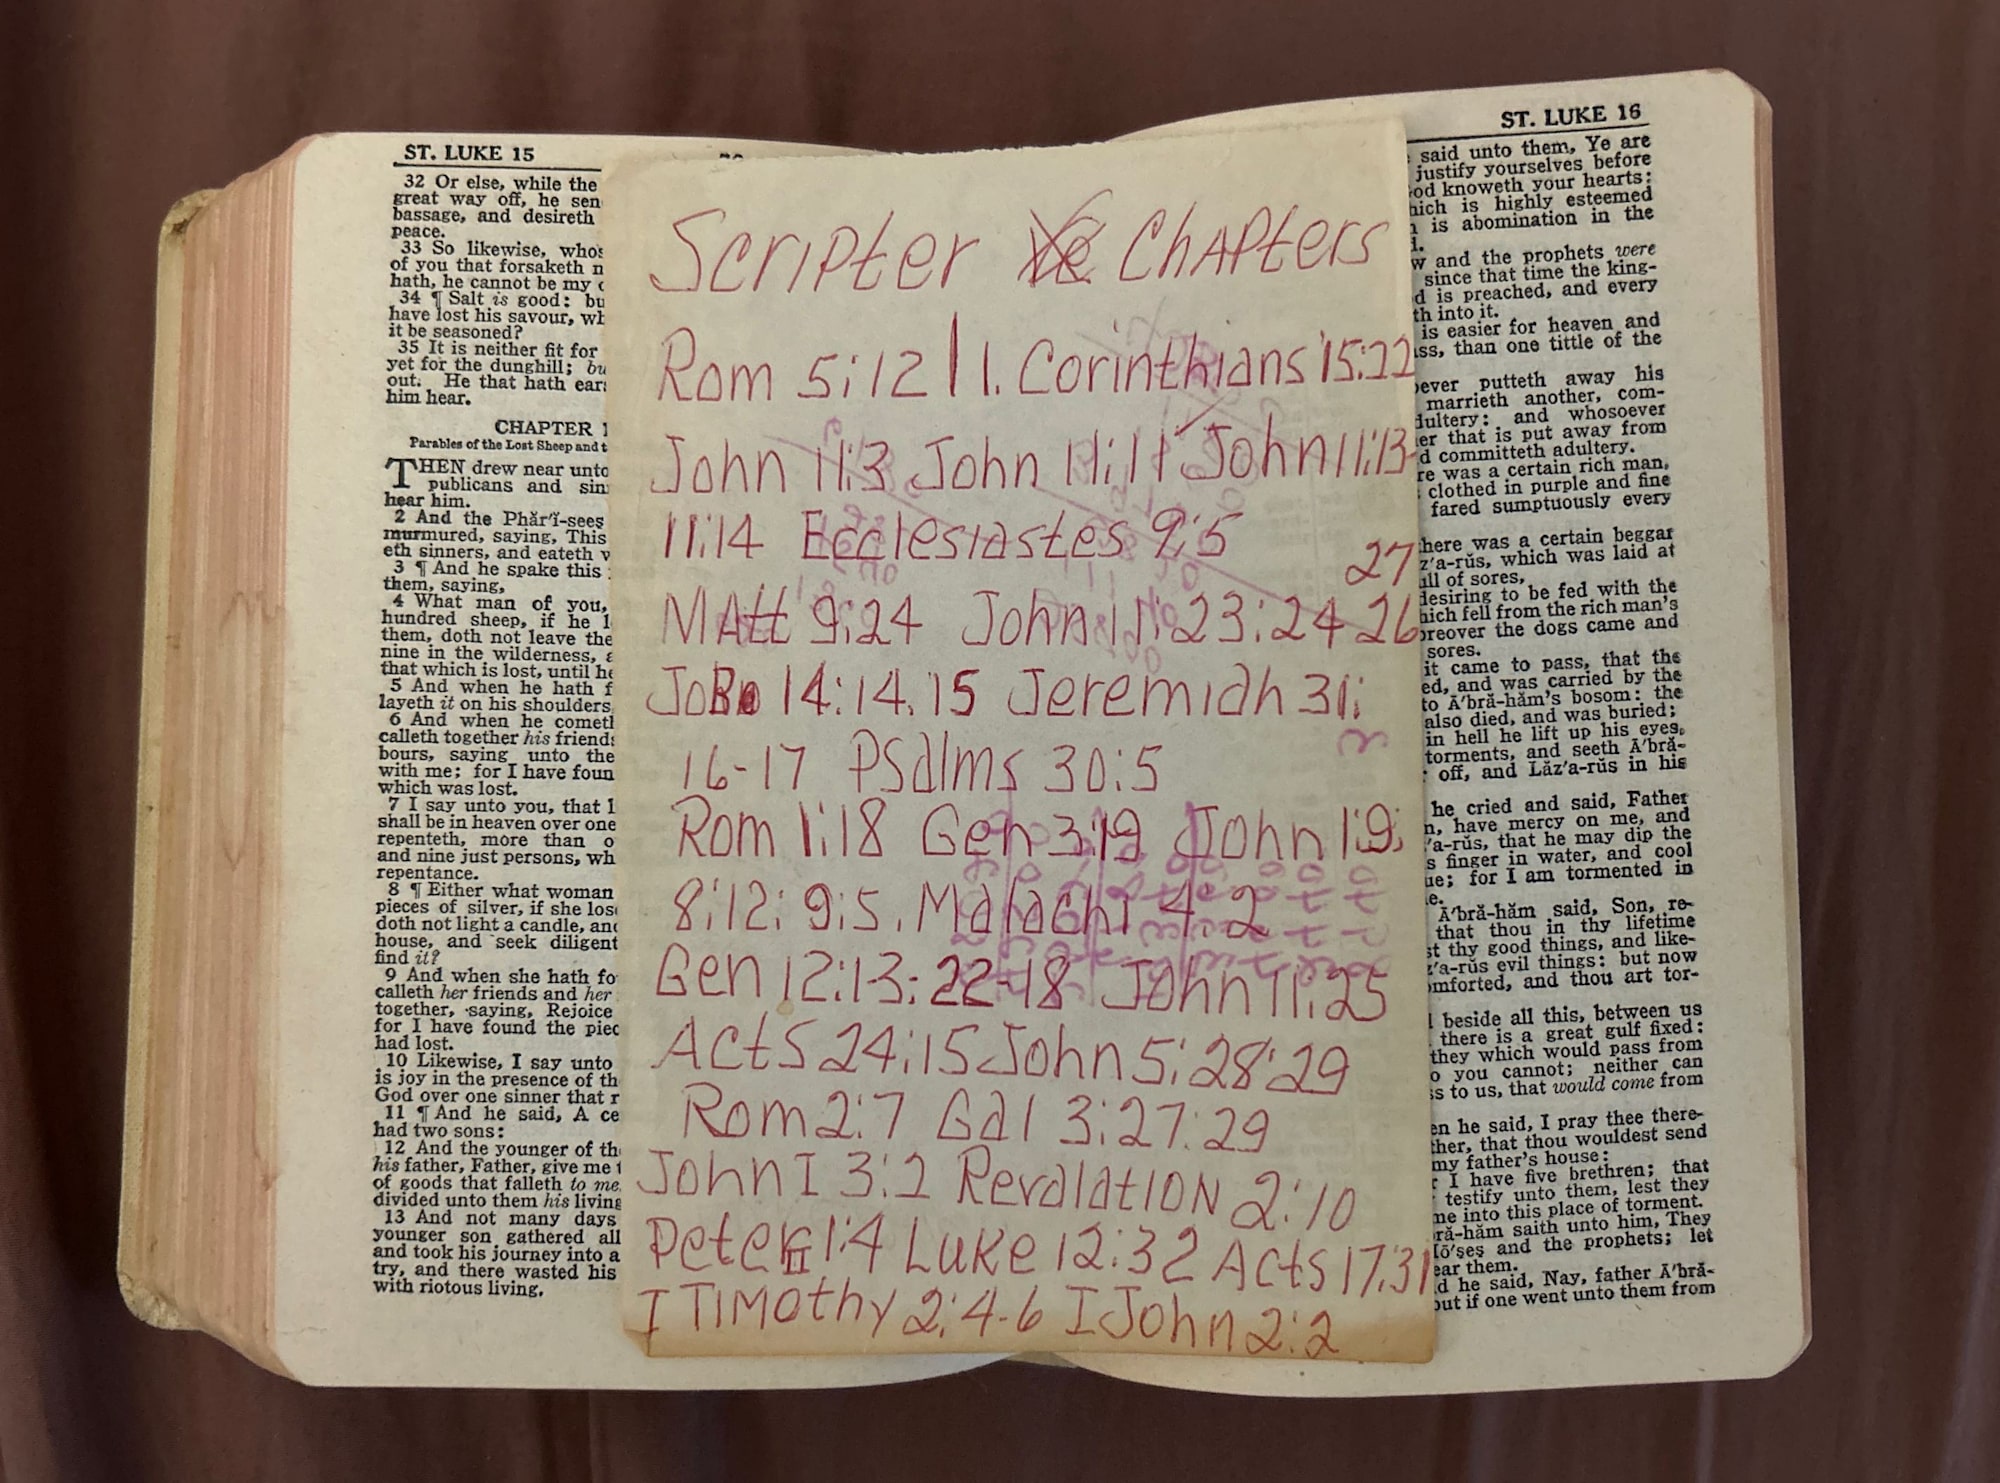 ST. LUKE 15
32 Or else, while the
great way off, he sen
bassage, and desireth
peace.
33 So likewise, whos
of you that forsaketh n
hath, he cannot be my
34 ¶ Salt is good: bu
have lost his savour, wh
it be seasoned?
35 It is neither fit for
yet for the dunghill; bu
out. He that hath ears
him hear.
CHAPTER 1
Parables of the Lost Sheep and t
THEN drew near unto
publicans and sin
hear him.
2 And the Phăr'ĭ-sees
murmured, saying, This
eth sinners, and eateth w
3 ¶ And he spake this
them, saying,
4 What man of you,
hundred sheep, if he l
them, doth not leave the
nine in the wilderness, a
that which is lost, until he
5 And when he hath f
layeth it on his shoulders
6 And when he cometh
calleth together his friends
bours, saying unto the
with me; for I have foun
which was lost.
7 I say unto you, that l
shall be in heaven over one
repenteth, more than o
and nine just persons, wh
repentance.
8 ¶ Either what woman
pieces of silver, if she lose
doth not light a candle, and
house, and seek diligent
find it?
9 And when she hath fo
calleth her friends and her
together, saying, Rejoice
for I have found the piec
had lost.
10 Likewise, I say unto
is joy in the presence of th
God over one sinner that r
11 ¶ And he said, A ce
had two sons:
12 And the younger of th
his father, Father, give me t
of goods that falleth to me.
divided unto them his living
13 And not many days
younger son gathered all
and took his journey into a
try, and there wasted his
with riotous living.
Scripter Chapters
Rom 5:12 | 1. Corinthians 15:22
John 11:3 John 11:11 John 11:13-
11:14 Ecclesiastes 9:5
27
Matt 9:24 John 11:23:24 26
Job 14:14.15 Jeremiah 31:
16-17 Psalms 30:5
Rom 1:18 Gen 3:19 John 1:9;
8:12; 9:5. Malachi 4:2
Gen 12:1-3; 22-18 John 11:25
Acts 24:15 John 5:28:29
Rom 2:7 Gal 3:27:29
John I 3:2 Revalation 2:10
Peter II 1:4 Luke 12:32 Acts 17:31
I Timothy 2:4-6 I John 2:2
ST. LUKE 16
said unto them, Ye are
justify yourselves before
od knoweth your hearts:
hich is highly esteemed
is abomination in the
d.
w and the prophets were
since that time the king-
d is preached, and every
th into it.
is easier for heaven and
ass, than one tittle of the
ever putteth away his
marrieth another, com-
dultery: and whosoever
er that is put away from
d committeth adultery.
re was a certain rich man,
clothed in purple and fine
fared sumptuously every
here was a certain beggar
z'a-rŭs, which was laid at
ull of sores,
desiring to be fed with the
hich fell from the rich man's
oreover the dogs came and
sores.
it came to pass, that the
ed, and was carried by the
to Ā'bră-hăm's bosom: the
also died, and was buried;
in hell he lift up his eyes,
torments, and seeth Ā'bră-
off, and Lăz'a-rŭs in his
he cried and said, Father
n, have mercy on me, and
'a-rŭs, that he may dip the
s finger in water, and cool
ue; for I am tormented in
e.
Ā'bră-hăm said, Son, re-
that thou in thy lifetime
st thy good things, and like-
z'a-rŭs evil things: but now
omforted, and thou art tor-
beside all this, between us
there is a great gulf fixed:
they which would pass from
o you cannot; neither can
ss to us, that would come from
en he said, I pray thee there-
ther, that thou wouldest send
my father's house:
r I have five brethren; that
testify unto them, lest they
me into this place of torment.
ră-hăm saith unto him, They
ō'ses and the prophets; let
ear them.
d he said, Nay, father Ā'bră-
out if one went unto them from